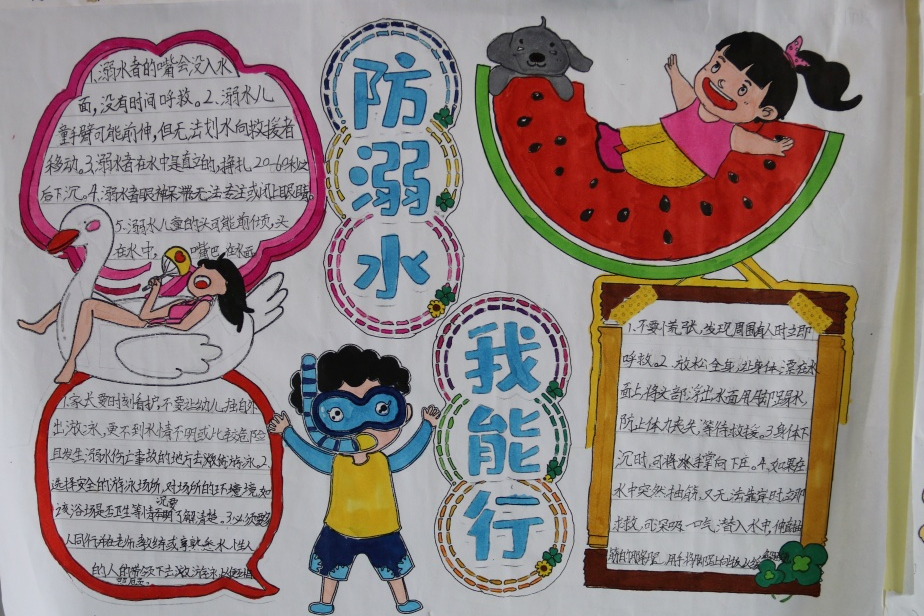 防溺水
我能行
1.溺水者的嘴会没入水
面,没有时间呼救。2.溺水儿
童手臂可能前伸,但无法划水向救援者
移动。3.溺水者在水中是直立的,挣扎20-60秒之
后下沉。4.溺水者眼神呆滞,无法专注或闭上眼睛。
5.溺水儿童的头可能前倾,头
在水中,嘴巴在水面
1.家长要时刻看护,不要让幼儿独自外
出游泳,更不到水情不明或比较危险
且发生溺水伤亡事故的地方去游泳。2.
选择安全的游泳场所,对场所的环境,如
该浴场是否卫生等情况要了解清楚。3.必须要
人同行在老师教练或熟悉水性人
的人的带领下去游泳
1.不要慌张,发现周围有人时立即
呼救。2.放松全身,让身体漂在水
面上,将头部浮出水面用脚踢水,
防止体力丧失,等待救援。3.身体下
沉时,可将水手掌向下压。4.如果在
水中突然抽筋,又无法靠岸时,立即
求救,可深吸一气,潜入水中,伸直